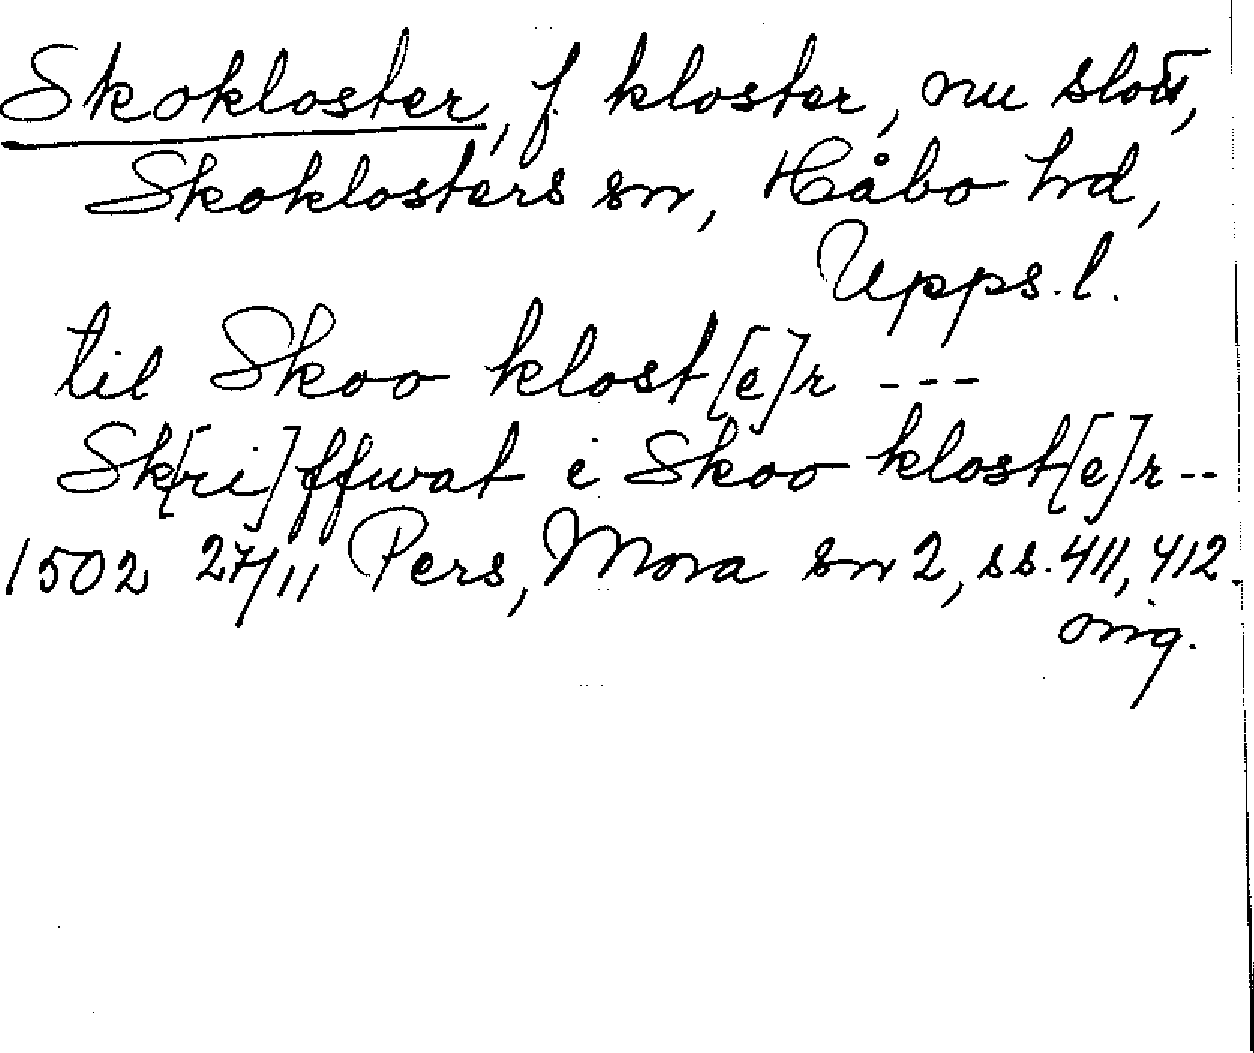 Skokloster, f. kloster, nu slott,
Skoklosters sn, Håbo hd,
Upps. l.
til Skoo klost[e]r ---
Sk[ri]ffwat i Skoo klost[e]r --
1502 27/11 Pers, Mora sn 2, ss. 411, 412.
orig.